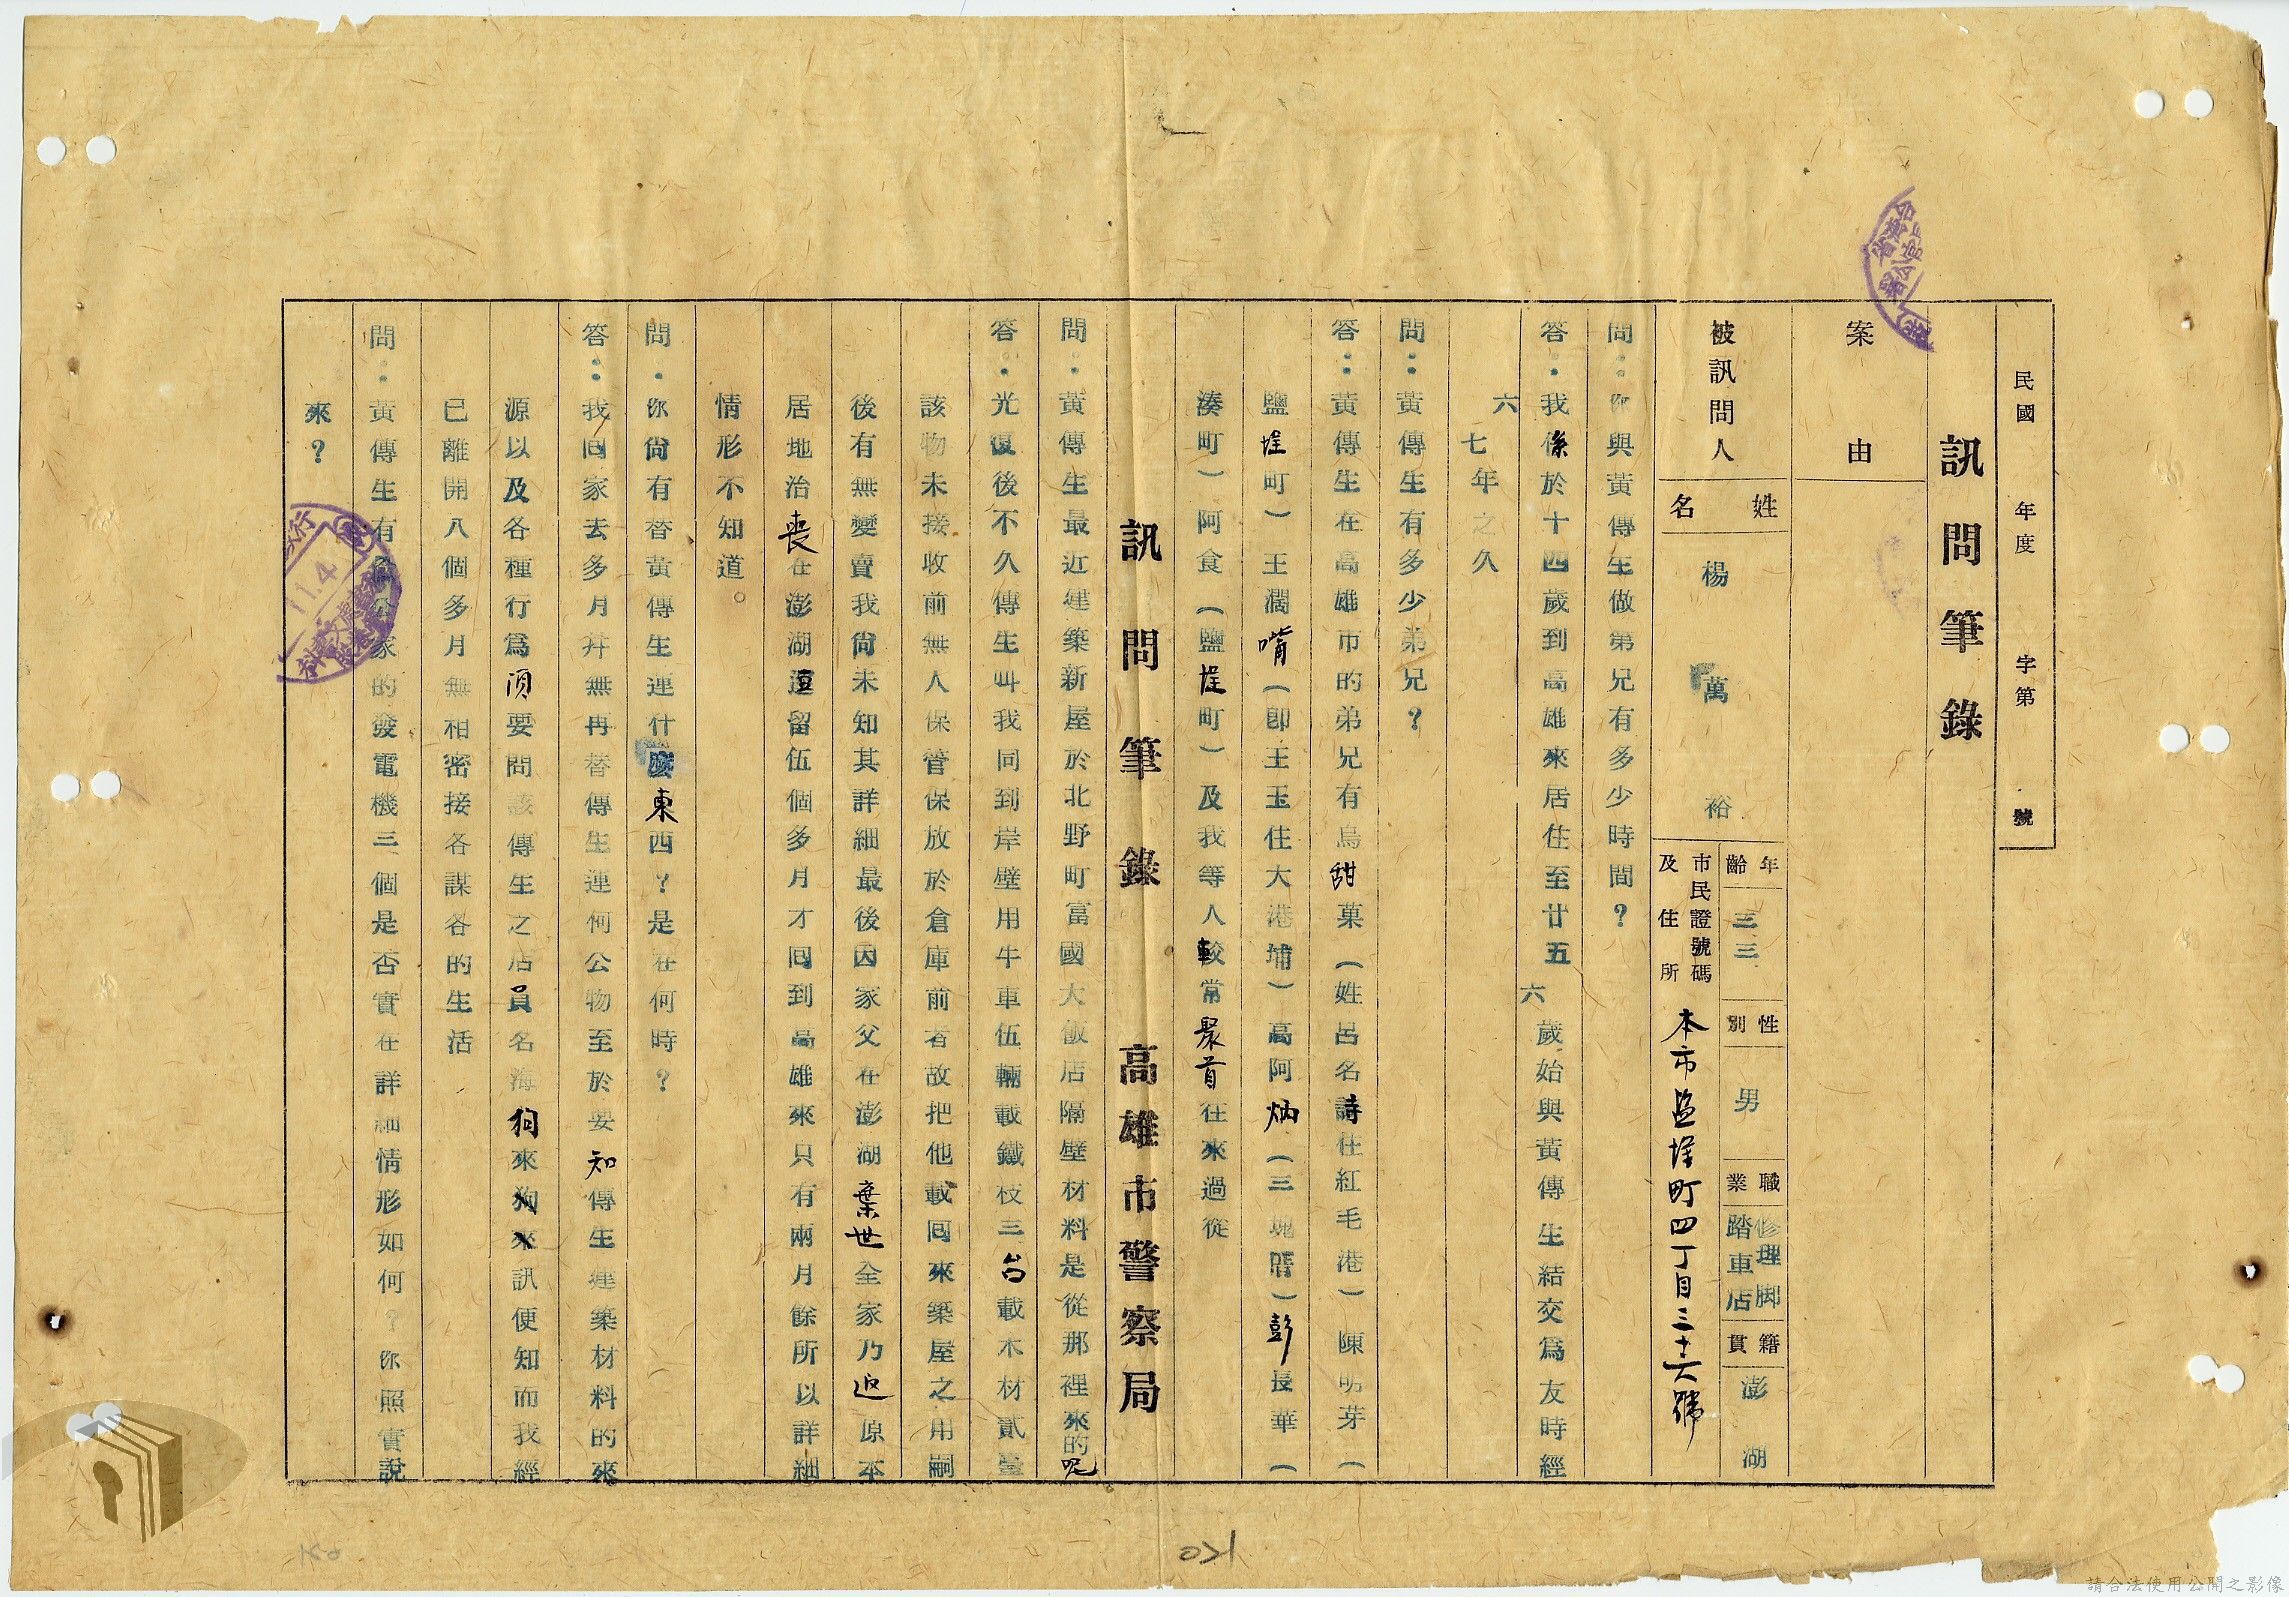 民國 年度 字第 號
訊問筆錄
案由
被訊問人
姓名
楊萬裕
年齡
三三
性別
男
職業
修理脚踏車店
籍貫
澎湖
市民證號碼及住所
本市塩埕町四丁目三十六號
問：你與黃傳生做第兄有多少時間？
答：我係於十四歲到高雄來居住至廿五六歲始與黃傳生結交為友時經
六七年之久
問：黃傳生有多少弟兄？
答：黃傳生在高雄市的弟兄有烏甜菓（姓呂名詩住紅毛港）陳明芽（
鹽埕町）王濶嘴（卽王玉住大港埔）高阿炳（三塊厝）彭長華（
湊町）阿食（鹽埕町）及我等人較常聚首往來過從
訊問筆錄 高雄市警察局
問：黃傳生最近建築新屋於北野町富國大飯店隔壁材料是從那裡來的呢
答：光復後不久傳生叫我同到岸壁用牛車伍輛載鐵枝三台載木材貳臺
該物未接收前無人保管保放於倉庫前者故把他載囘來築屋之用嗣
後有無變賣我尙未知其詳細最後因家父在澎湖棄世全家乃返原本
居地治喪在澎湖逗留伍個多月才囘到高雄來只有兩月餘所以詳細
情形不知道。
問：你尙有替黃傳生運什麼東西？是在何時？
答：我囘家去多月幷無再替傳生運何公物至於要知傳生建築材料的來
源以及各種行爲須要問該傳生之店員名海狗來狗來訊便知而我經
已離開八個多月無相密接各謀各的生活
問：黃傳生有 家的發電機三個是否實在詳細情形如何？你照實說
來？
11.4
請合法使用公開之影像